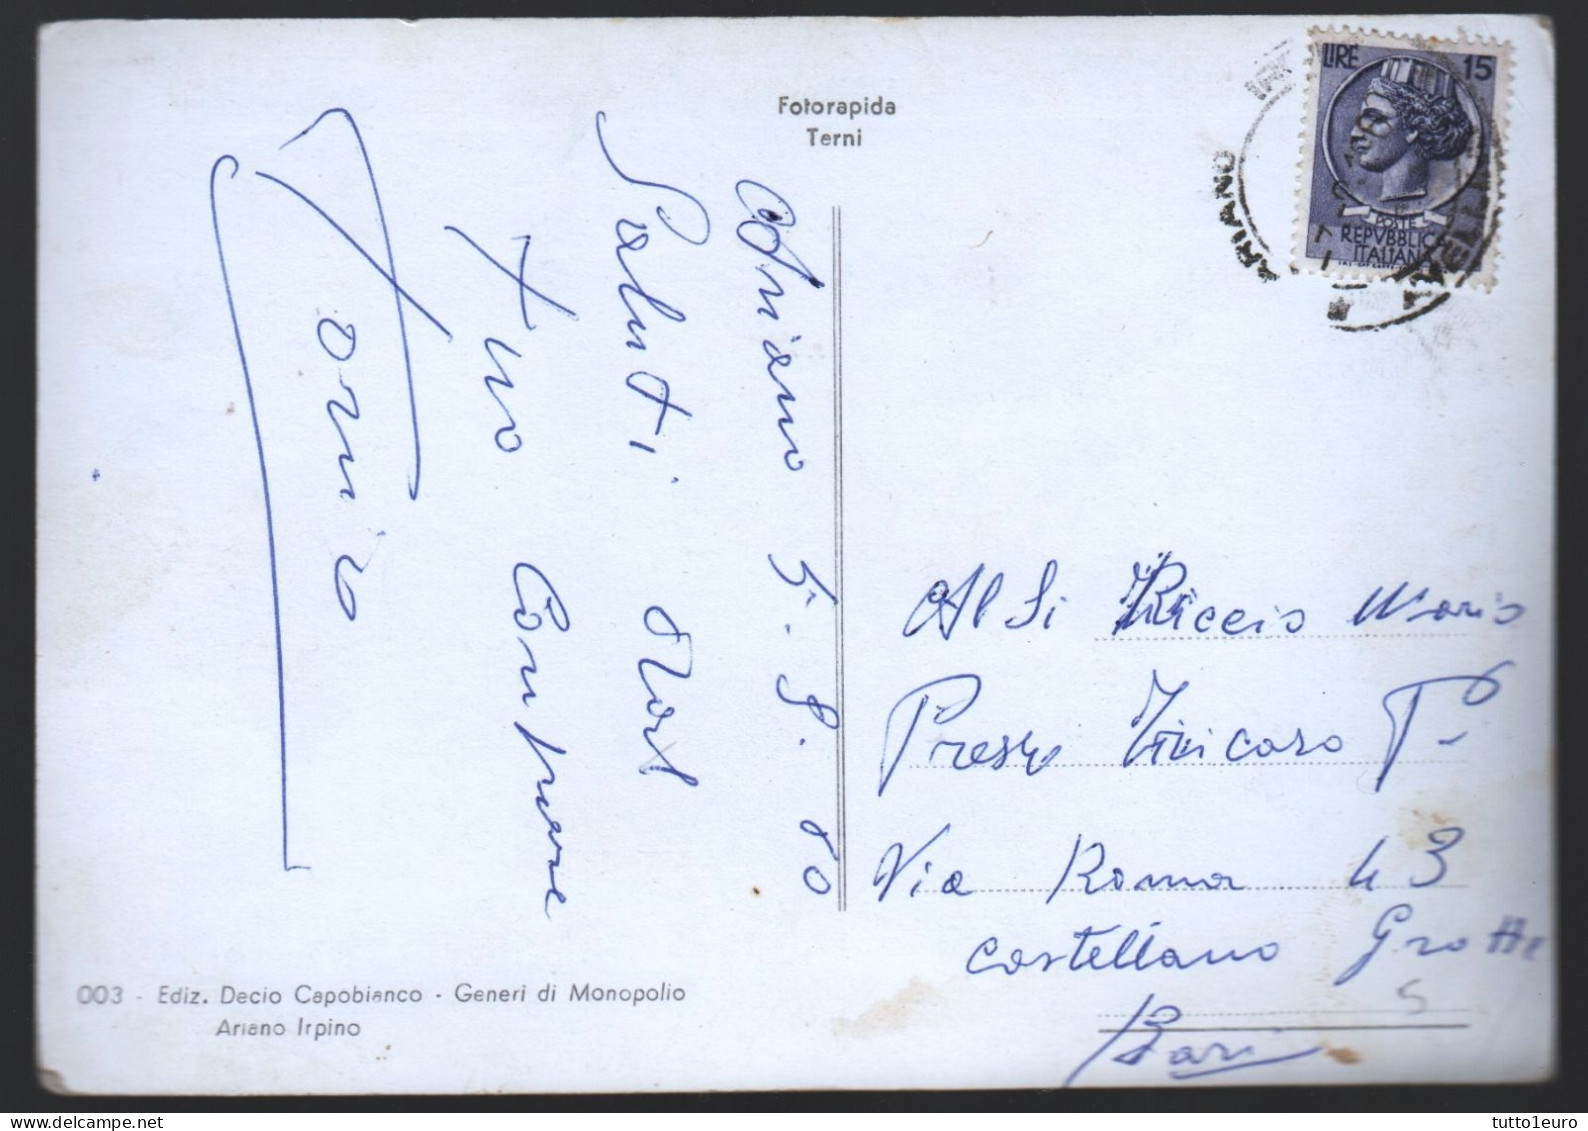 Fotorapida
Terni
LIRE 15
POSTE
REPVBBLICA
ITALIANA
ARIANO
Ariano 5. 8. 60
Saluti dal
tuo Compare
Tonino
Al Si Riccio Mario
Presso Vinicaso
Via Roma 43
Castellano Grotte
Bari
003 - Ediz. Decio Capobianco - Generi di Monopolio
Ariano Irpino
tutto1euro